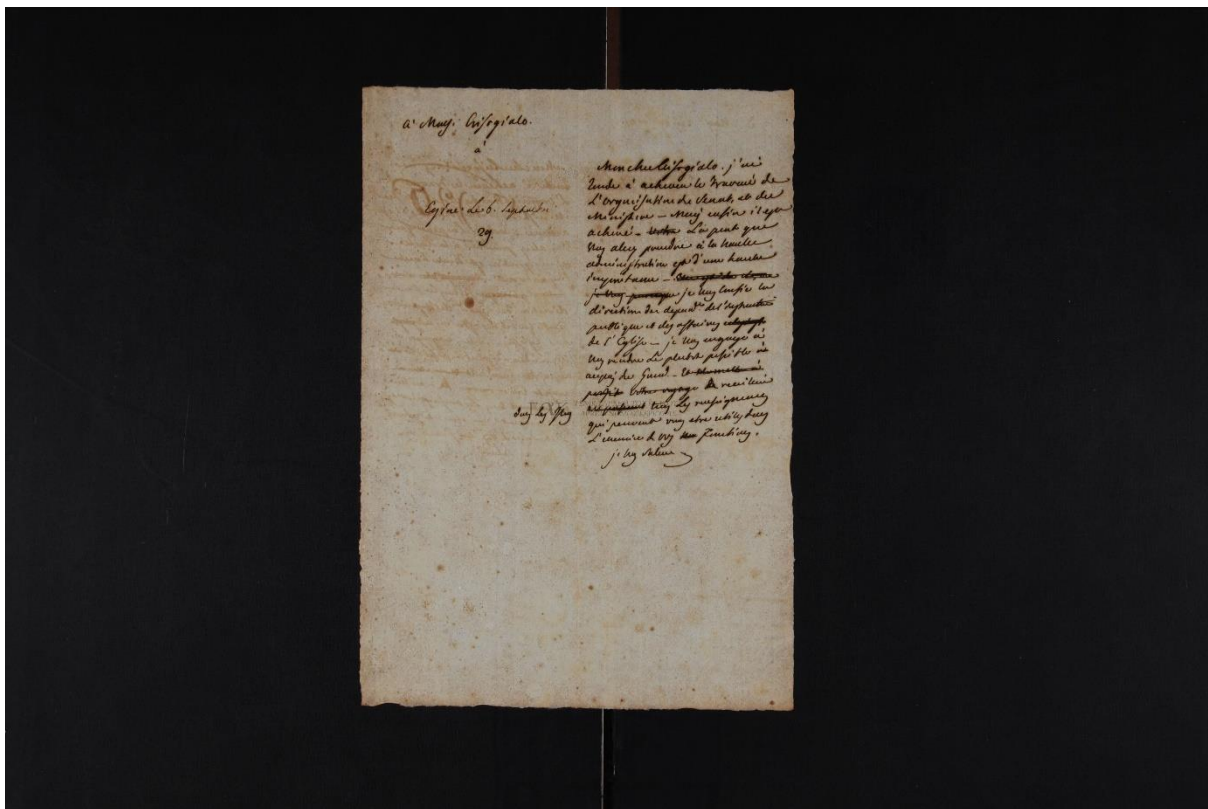 à Mons. Crisogialo.
à
Egine Le 6. Septembre
29.
Mon cher Crisogialo. j'ai
tardé à achever le travail de
L'organisation du Senat, et du
Ministère — Mais enfin il est
achevé — La part que
Vous allez prendre à la haute
administration est d'une haute
importance —
je vous confie la
direction du depart.t de l'instruction
publique et des affaires
de l'Eglise — je vous engage à
vous rendre le plutôt possible
auprès du Gouv.t —
votre voyage recueillir
tous Les renseignemens
qui peuvent vous être utiles dans
L'exercice de vos fonctions.
je vous salue
dans Les Isles